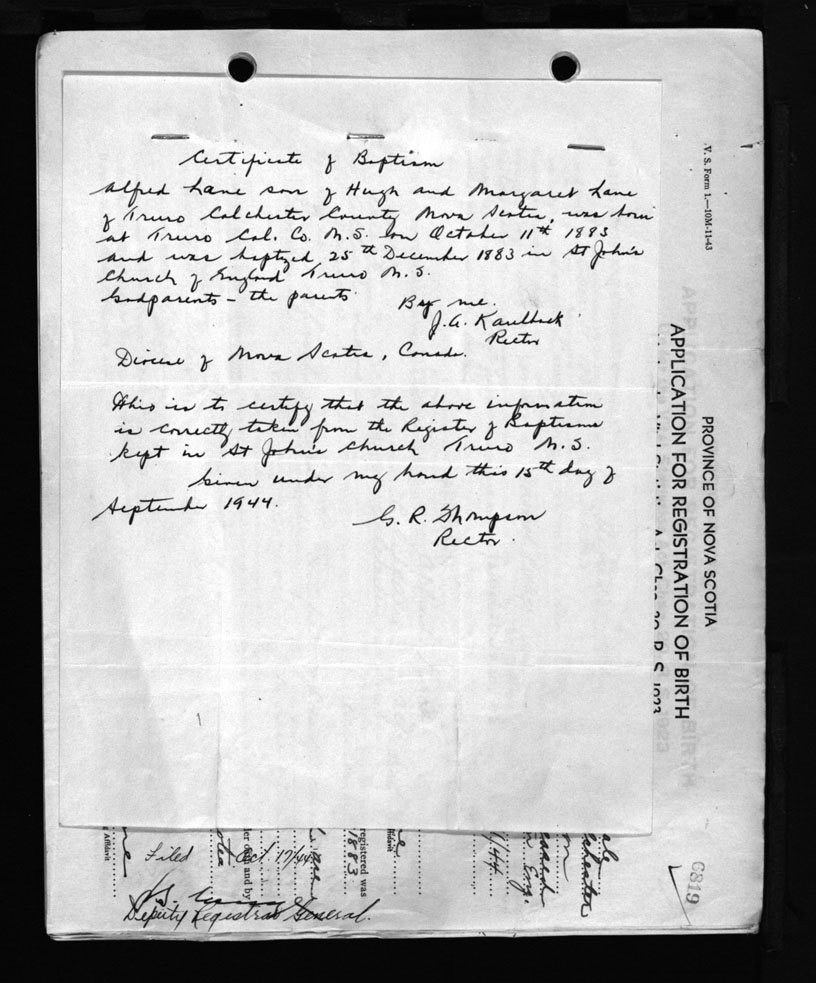 Certificate of Baptism
Alfred Lane son of Hugh and Margaret Lane
of Truro Colchester County Nova Scotia, was born
at Truro Col. Co. N.S. on October 11th 1883
and was baptized 25th December 1883 in St John's
Church of England Truro N.S.
Godparents - the parents
By me.
J.A. Kaulback
Rector
Diocese of Nova Scotia, Canada.
This is to certify that the above information
is correctly taken from the Register of Baptisms
kept in St John's Church Truro N.S.
Given under my hand this 15th day of
September 1944.
G. R. Thompson
Rector.
V. S. Form 1.—10M-11-43
PROVINCE OF NOVA SCOTIA
APPLICATION FOR REGISTRATION OF BIRTH
registered was
1883
der oath and by
Affidavit
Filed Oct. 17/44
Deputy Registrar General.
C819